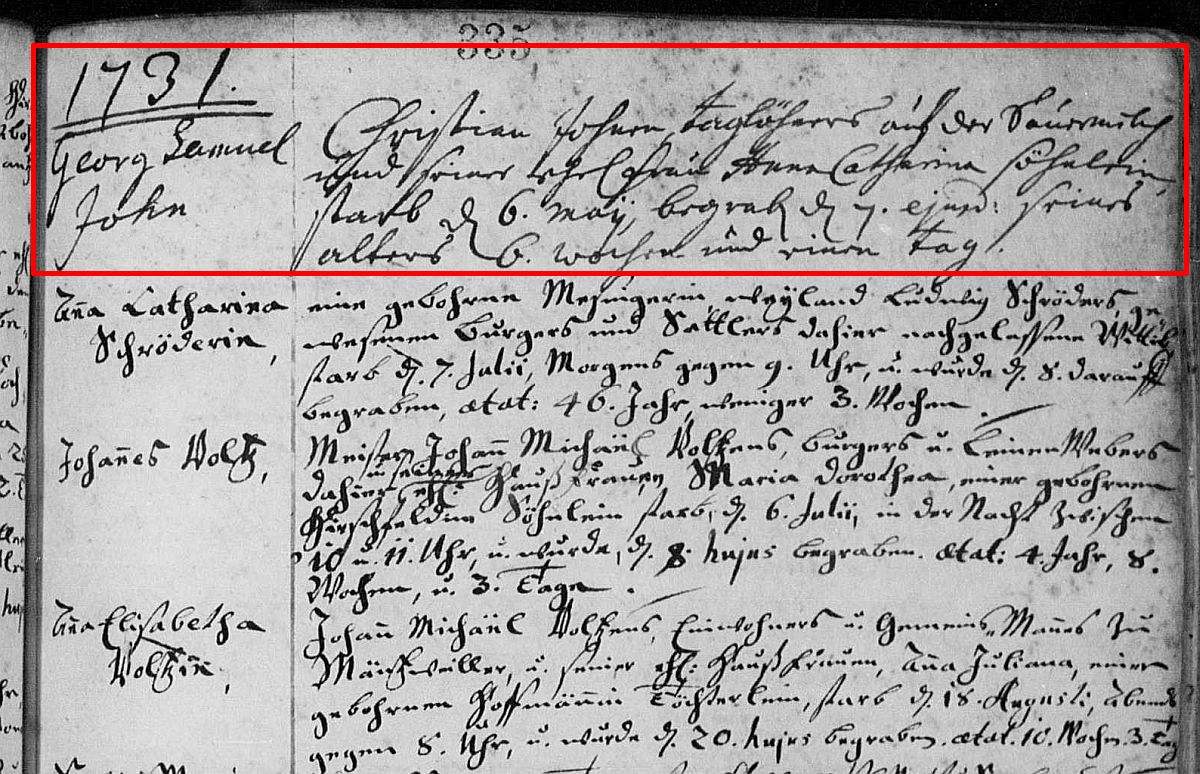 335
1731.
Georg Samuel
John
Christian Johnen, taglöhners auf der Sauermilch
und seiner ehel. frau Anna Catharina söhnlein,
starb d. 6. maÿ, begrab. d. 7. ejusd: seines
alters 6. wochen und einen tag.
Anna Catharina
Schröderin,
eine gebohrne Mesingerin, weyland Ludwig Schröders, ge-
wesenen burgers und Sattlers dahier nachgelassene Wittib
starb d. 7. Julii, Morgens gegen 9. Uhr, u. wurde d. 8. darauff
begraben, ætat: 46. Jahr, weniger 3. Wochen.
Johannes Voltz,
Meister Johann Michaël Voltzens, burgers u. Leinen Webers
dahier, u. seiner ehl: Haußfrauen, Maria Dorothea, einer gebohrnen
Hirschfeldin Söhnlein starb, d. 6. Julii, in der Nacht zwischen
10 u. 11. Uhr, u. wurde, d. 8. hujus begraben. ætat: 4. Jahr, 8.
Wochen, u. 3. Tage.
Anna Elisabetha
Voltzin,
Johann Michaël Voltzens, Einwohners u. Gemeins-Mannes zu
u. seiner ehl: Haußfrauen, Anna Juliana, einer
gebohrnen Hoffmännin Töchterlein, starb d. 18. Augusti, Abends
gegen 8. Uhr, u. wurde d. 20. hujus begraben. ætat. 10. Wochn. 3. Tag